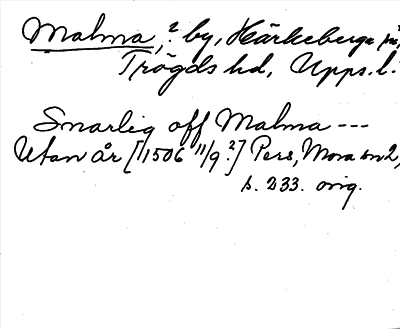 Malma, ? by, Härkeberga sn,
Trögds hd, Upps. l.
Snarlig off Malma ---
Utan år [1506 11/9 ?] Pers, Mora sn 2,
s. 233. orig.